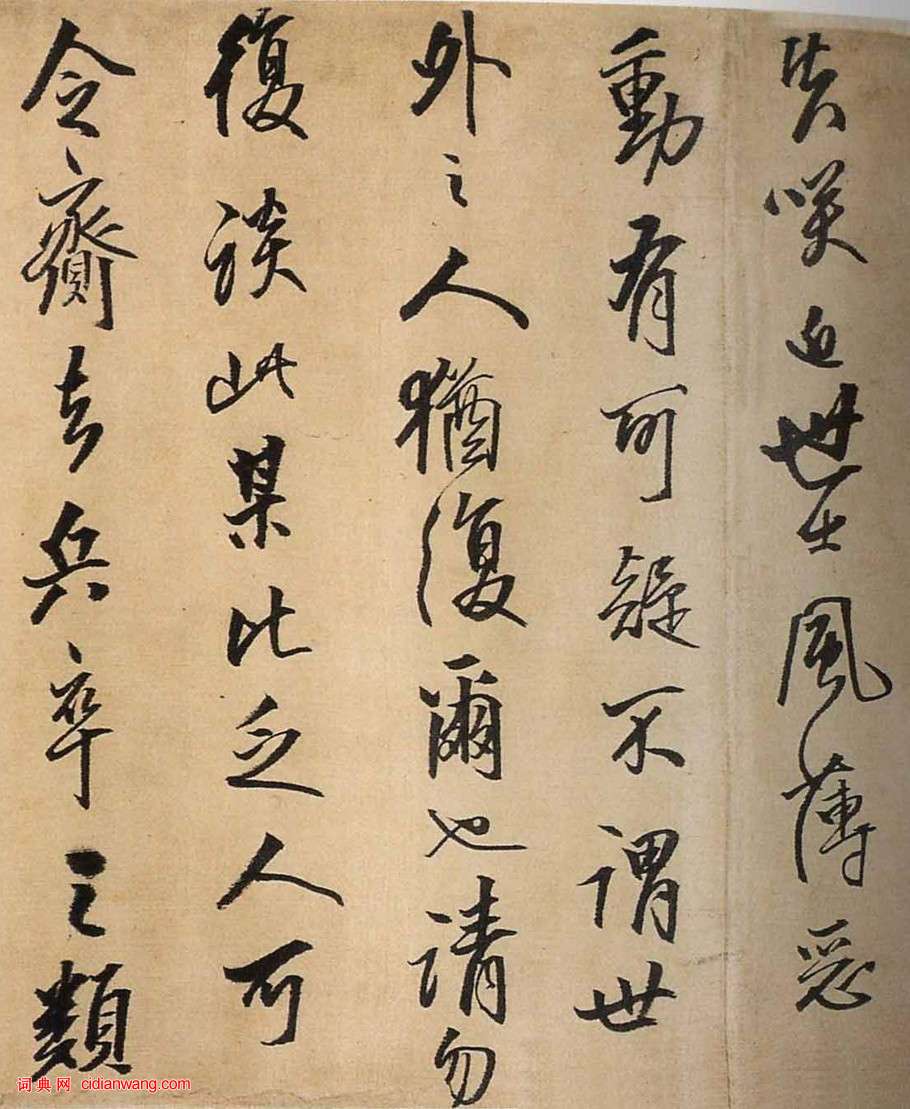 失咲近世士風薄惡
動有可疑不謂世
外之人猶復爾也請勿
復談此某比乏人可
令齎去兵卒之類
词典网 cidianwang.com